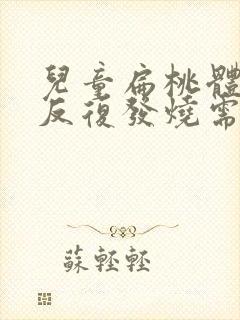 兒童扁桃體
反復發燒需
蘇輕輕